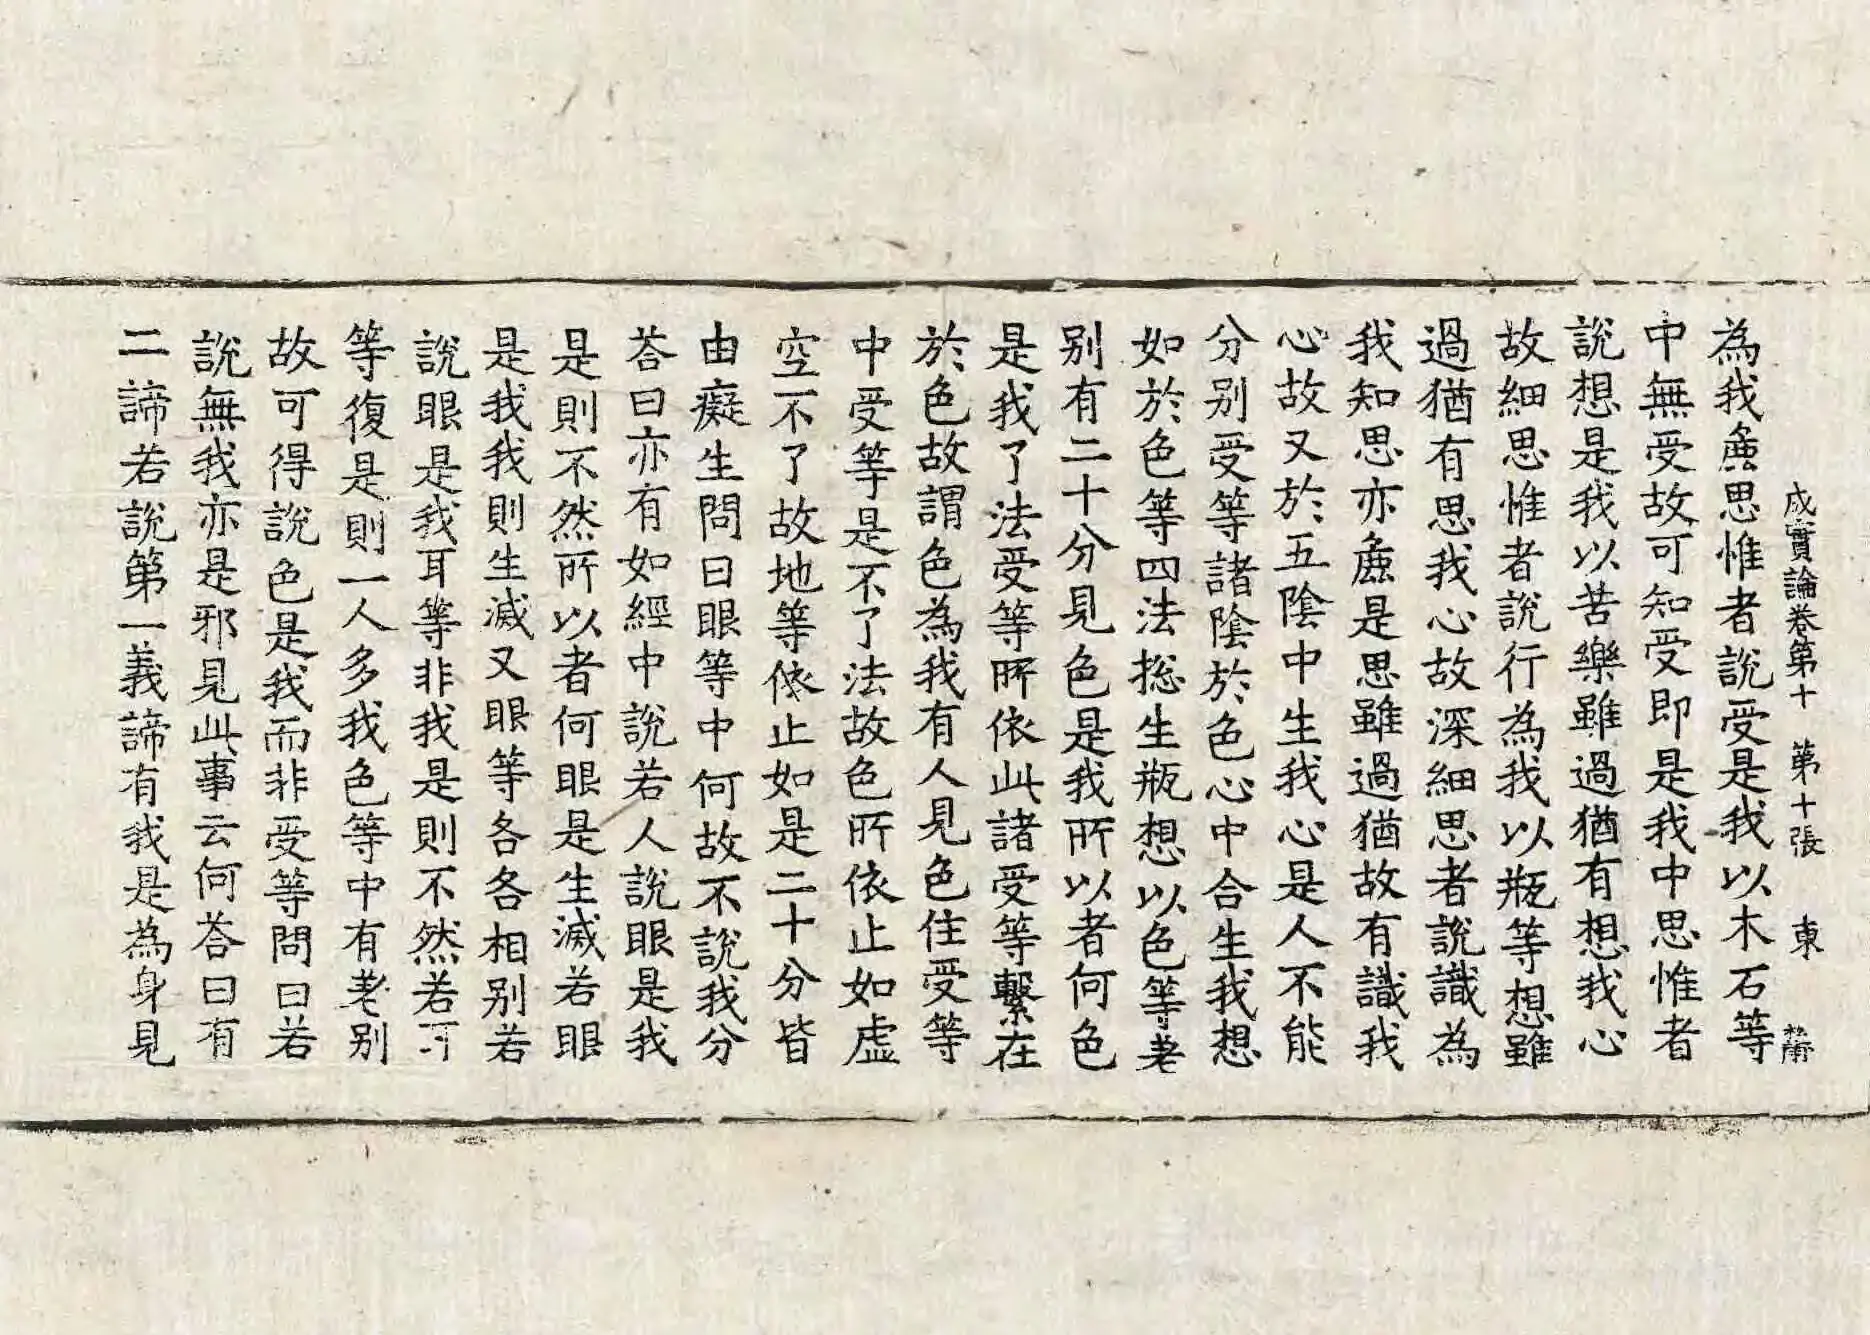 成實論卷第十 第十張 東
為我麁思惟者說受是我以木石等
中無受故可知受即是我中思惟者
說想是我以苦樂雖過猶有想我心
故細思惟者說行為我以瓶等想雖
過猶有思我心故深細思者說識為
我知思亦麁是思雖過猶故有識我
心故又於五陰中生我心是人不能
分別受等諸陰於色心中合生我想
如於色等四法揔生瓶想以色等差
別有二十分見色是我所以者何色
是我了法受等所依此諸受等繫在
於色故謂色為我有人見色住受等
中受等是不了法故色所依止如虛
空不了故地等依止如是二十分皆
由癡生問曰眼等中何故不說我分
荅曰亦有如經中說若人說眼是我
是則不然所以者何眼是生滅若眼
是我我則生滅又眼等各各相別若
說眼是我耳等非我是則不然若
等復是則一人多我色等中有差別
故可得說色是我而非受等問曰若
說無我亦是邪見此事云何荅曰有
二諦若說第一義諦有我是為身見